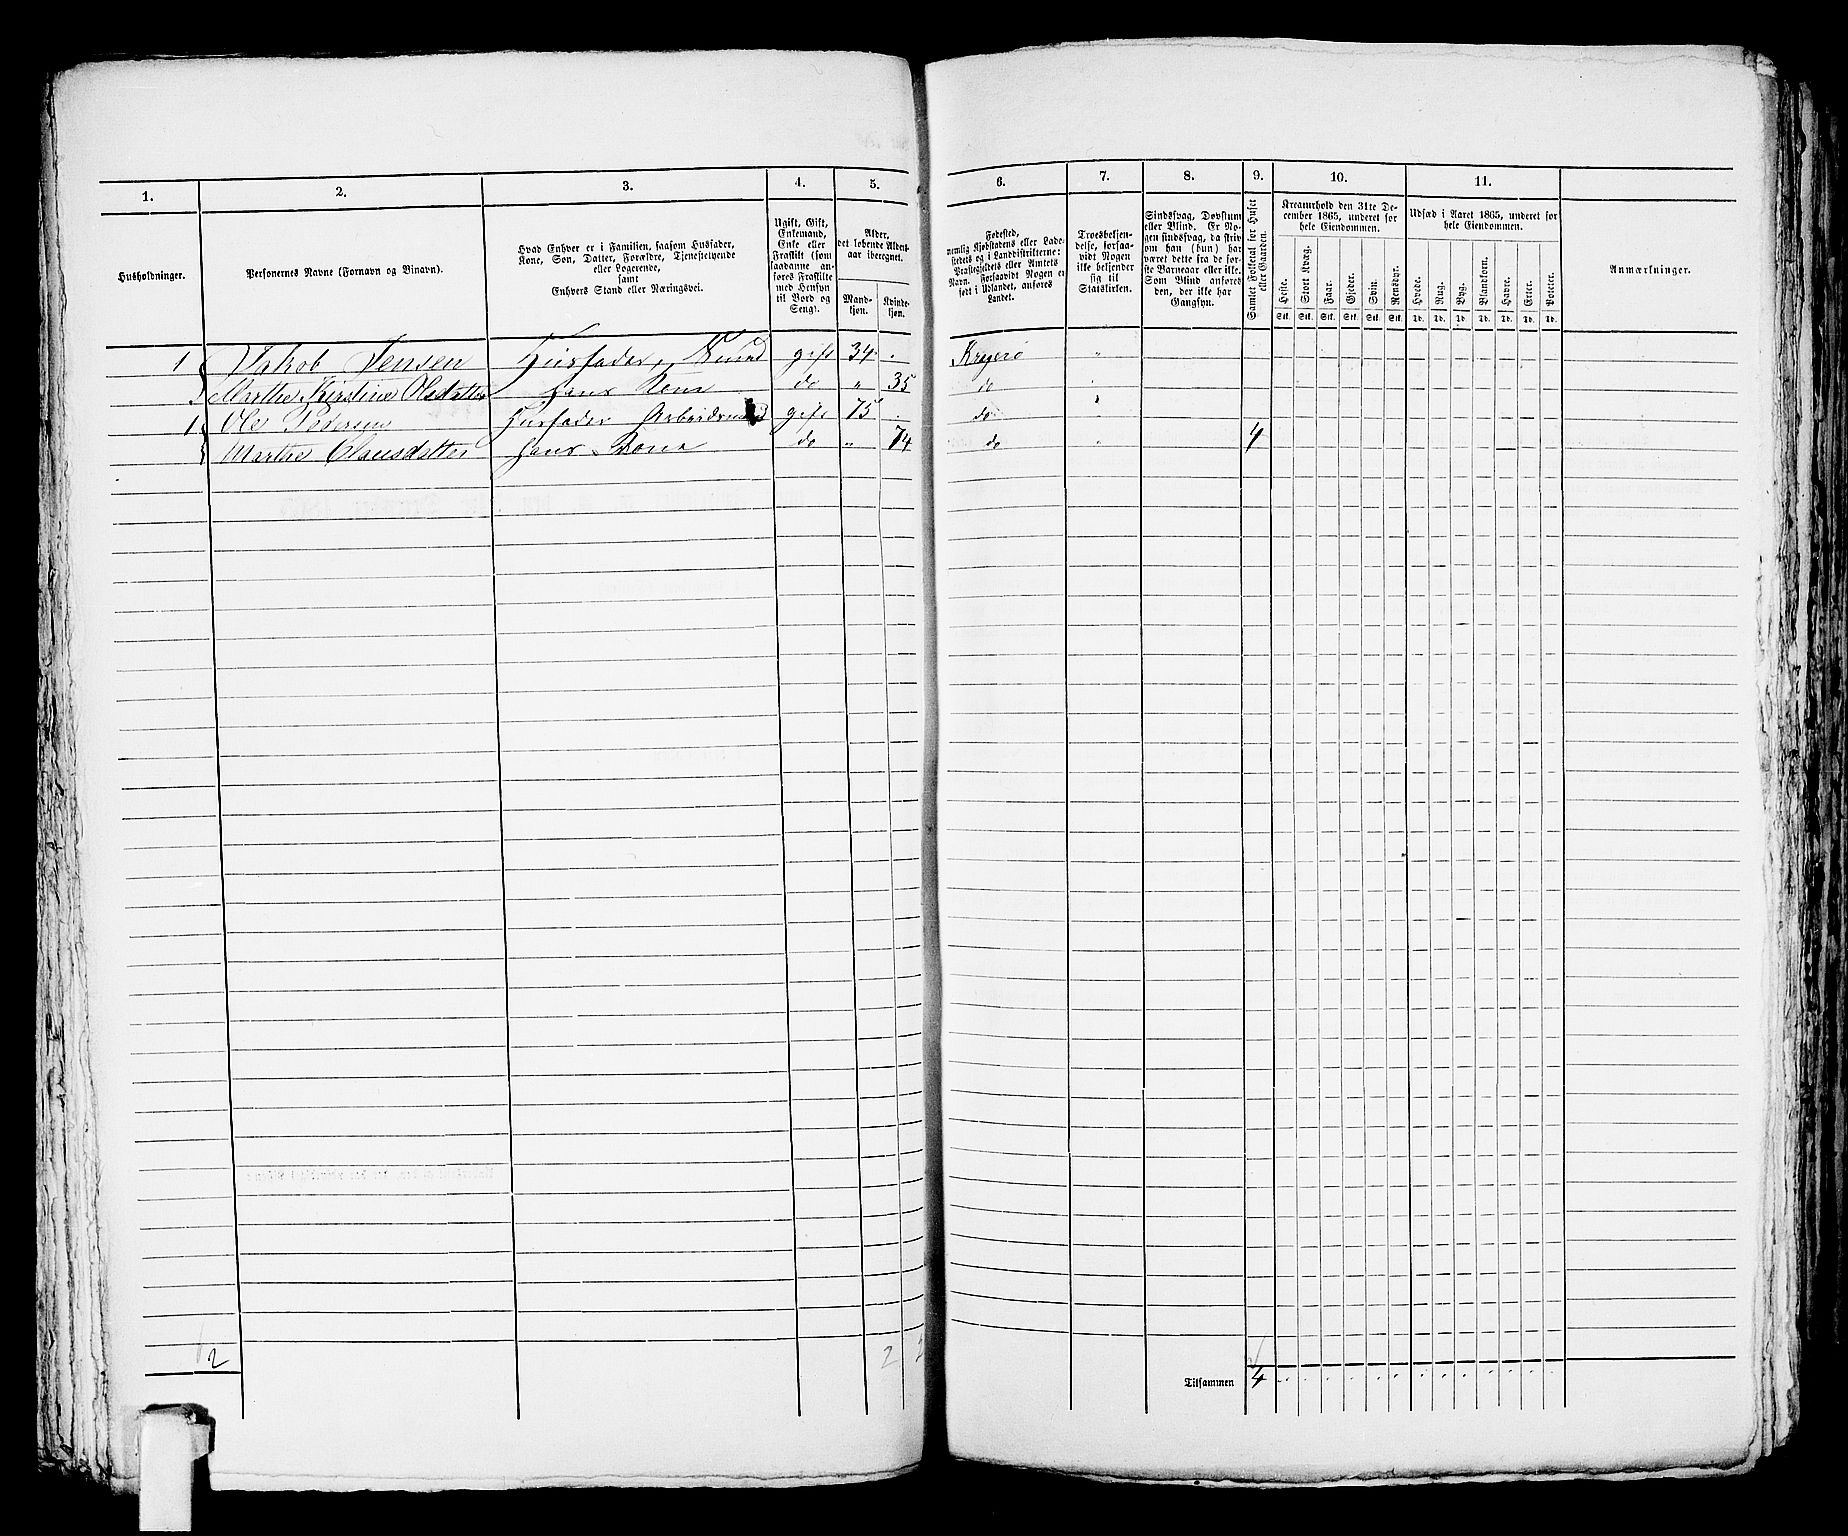 1.
2.
3.
4.
5.
6.
7.
8.
9.
10.
11.
Husholdninger.
Personernes Navne (Fornavn og Binavn).
Hvad Enhver er i Familien, saasom Husfader,
Kone, Søn, Datter, Forældre, Tjenestetyende
eller Logerende,
samt
Enhvers Stand eller Næringsvei.
Ugift, Gift,
Enkemand,
Enke eller
Fraskilt (som
saadanne an-
føres Fraskilte
med Hensyn
til Bord og
Seng).
Alder,
det løbende Alders-
aar iberegnet.
Mand-
kjøn.
Kvinde-
kjøn.
Fødested,
nemlig Kjøbstadens eller Lade-
stedets og i Landdistrikterne:
Præstegjeldets eller Amtets
Navn. Forsaavidt Nogen er
født i Udlandet, anføres
Landet.
Troesbekjen-
delse, forsaa-
vidt Nogen
ikke bekjender
sig til
Statskirken.
Sindssvag, Døvstum
eller Blind. Er No-
gen sindssvag, da skriv
om han (hun) har
været dette fra de før-
ste Barneaar eller ikke.
Som Blind anføres
den, der ikke har
Gangsyn.
Samlet Folketal for Huset
eller Gaarden.
Kreaturhold den 31te De-
cember 1865, underet for
hele Eiendommen.
Heste.
Stort Kvæg.
Faar.
Gjeder.
Svin.
Rensdyr.
Stk. Stk. Stk. Stk. Stk. Stk.
Udsæd i Aaret 1865, underet for
hele Eiendommen.
Hvede.
Rug.
Byg.
Blandkorn.
Havre.
Erter.
Poteter.
Td. Td. Td. Td. Td. Td. Td.
Anmærkninger.
1 Jakob Jensen Husfader, gift 34 " Kragerø "
Marthe Kirstine Olsdatter hans Kone do " 35 do "
1 Ole Pedersen Husfader Arbeidsmand gift 75 " do "
Marthe Clausdatter hans Kone do " 74 do " 4
2 2 2
Tilsammen 4